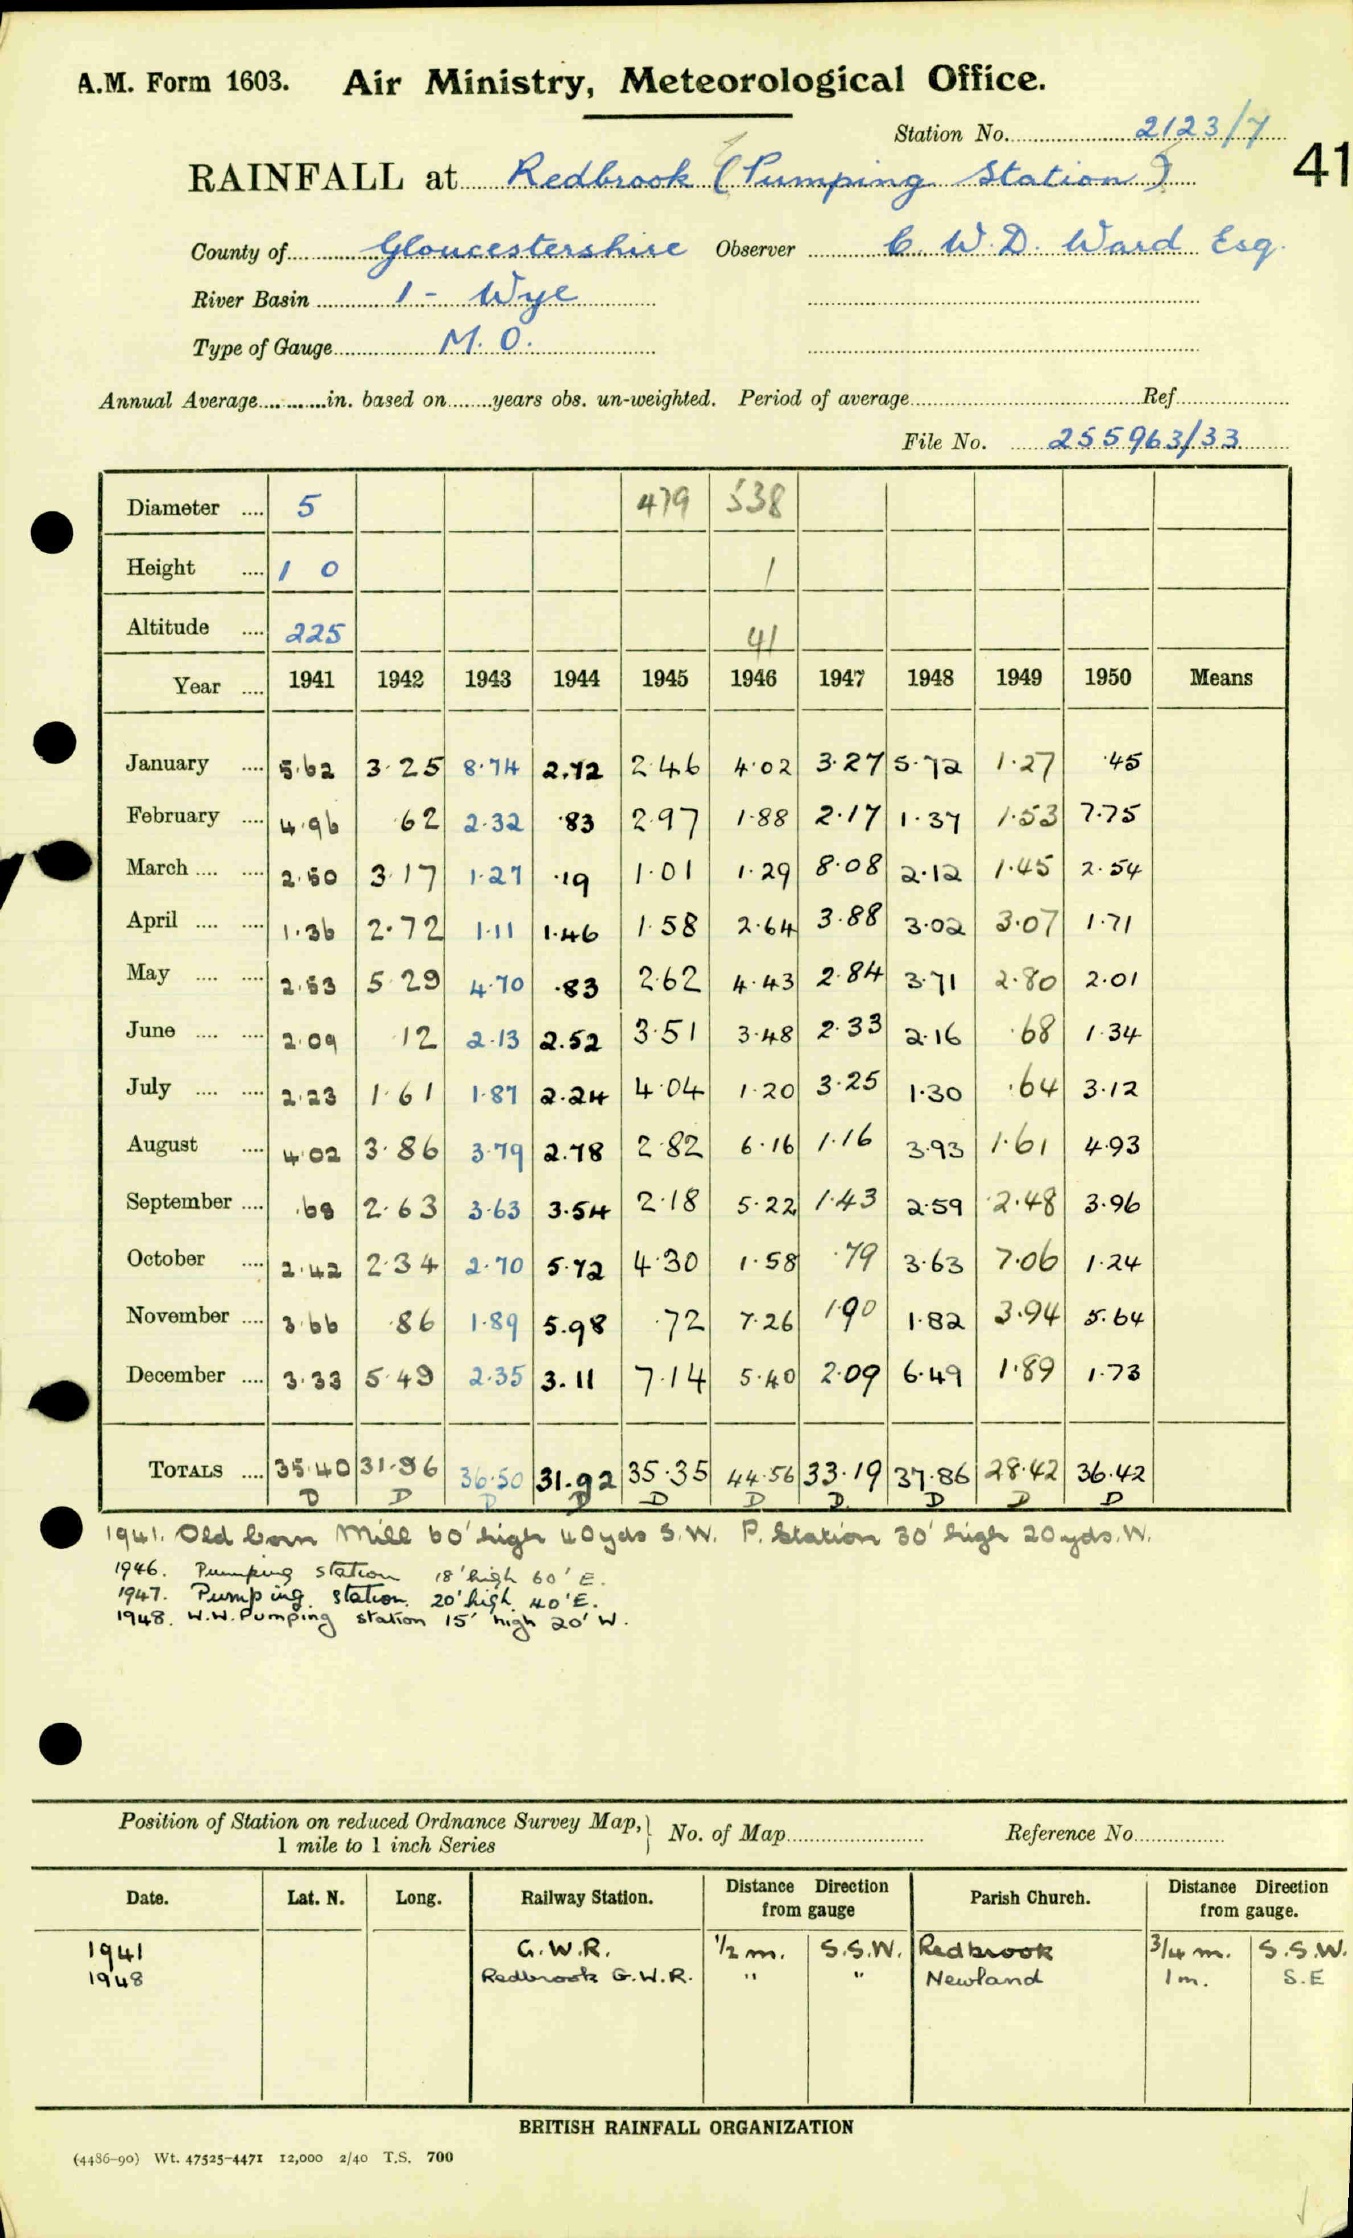 A.M. Form 1603. Air Ministry, Meteorological Office.
Station No. 2123/7
41
RAINFALL at Redbrook (Pumping Station)
County of Gloucestershire Observer C. W. D. Ward Esq.
River Basin 1 - Wye
Type of Gauge M. O.
Annual Average in. based on years obs. un-weighted. Period of average Ref
File No. 255963/33
Diameter .... 5 479 538
Height .... 1 0 1
Altitude .... 225 41
Year .... 1941 1942 1943 1944 1945 1946 1947 1948 1949 1950 Means
January .... 5.62 3.25 8.74 2.72 2.46 4.02 3.27 5.72 1.27 .45
February .... 4.96 .62 2.32 .83 2.97 1.88 2.17 1.37 1.53 7.75
March .... .... 2.50 3.17 1.27 .19 1.01 1.29 8.08 2.12 1.45 2.54
April .... .... 1.36 2.72 1.11 1.46 1.58 2.64 3.88 3.02 3.07 1.71
May .... .... 2.53 5.29 4.70 .83 2.62 4.43 2.84 3.71 2.80 2.01
June .... .... 2.09 .12 2.13 2.52 3.51 3.48 2.33 2.16 .68 1.34
July .... .... 2.23 1.61 1.87 2.24 4.04 1.20 3.25 1.30 .64 3.12
August .... 4.02 3.86 3.79 2.78 2.82 6.16 1.16 3.93 1.61 4.93
September .... .68 2.63 3.63 3.54 2.18 5.22 1.43 2.59 2.48 3.96
October .... 2.42 2.34 2.70 5.72 4.30 1.58 .79 3.63 7.06 1.24
November .... 3.66 .86 1.89 5.98 .72 7.26 1.90 1.82 3.94 5.64
December .... 3.33 5.49 2.35 3.11 7.14 5.40 2.09 6.49 1.89 1.73
TOTALS .... 35.40 31.96 36.50 31.92 35.35 44.56 33.19 37.86 28.42 36.42
D D D D D D D D D D
1941. Old Corn Mill 60' high 40yds S.W. P. Station 30' high 20yds. W.
1946. Pumping station 18' high 60' E.
1947. Pumping station 20' high 40' E.
1948. W.W. Pumping station 15' high 20' W.
Position of Station on reduced Ordnance Survey Map, 1 mile to 1 inch Series No. of Map Reference No.
Date. Lat. N. Long. Railway Station. Distance Direction from gauge Parish Church. Distance Direction from gauge.
1941 G.W.R. 1/2 m. S.S.W. Redbrook 3/4 m. S.S.W.
1948 Redbrook G.W.R. " " Newland 1 m. S.E
BRITISH RAINFALL ORGANIZATION
(4486-90) Wt. 47525-4471 12,000 2/40 T.S. 700